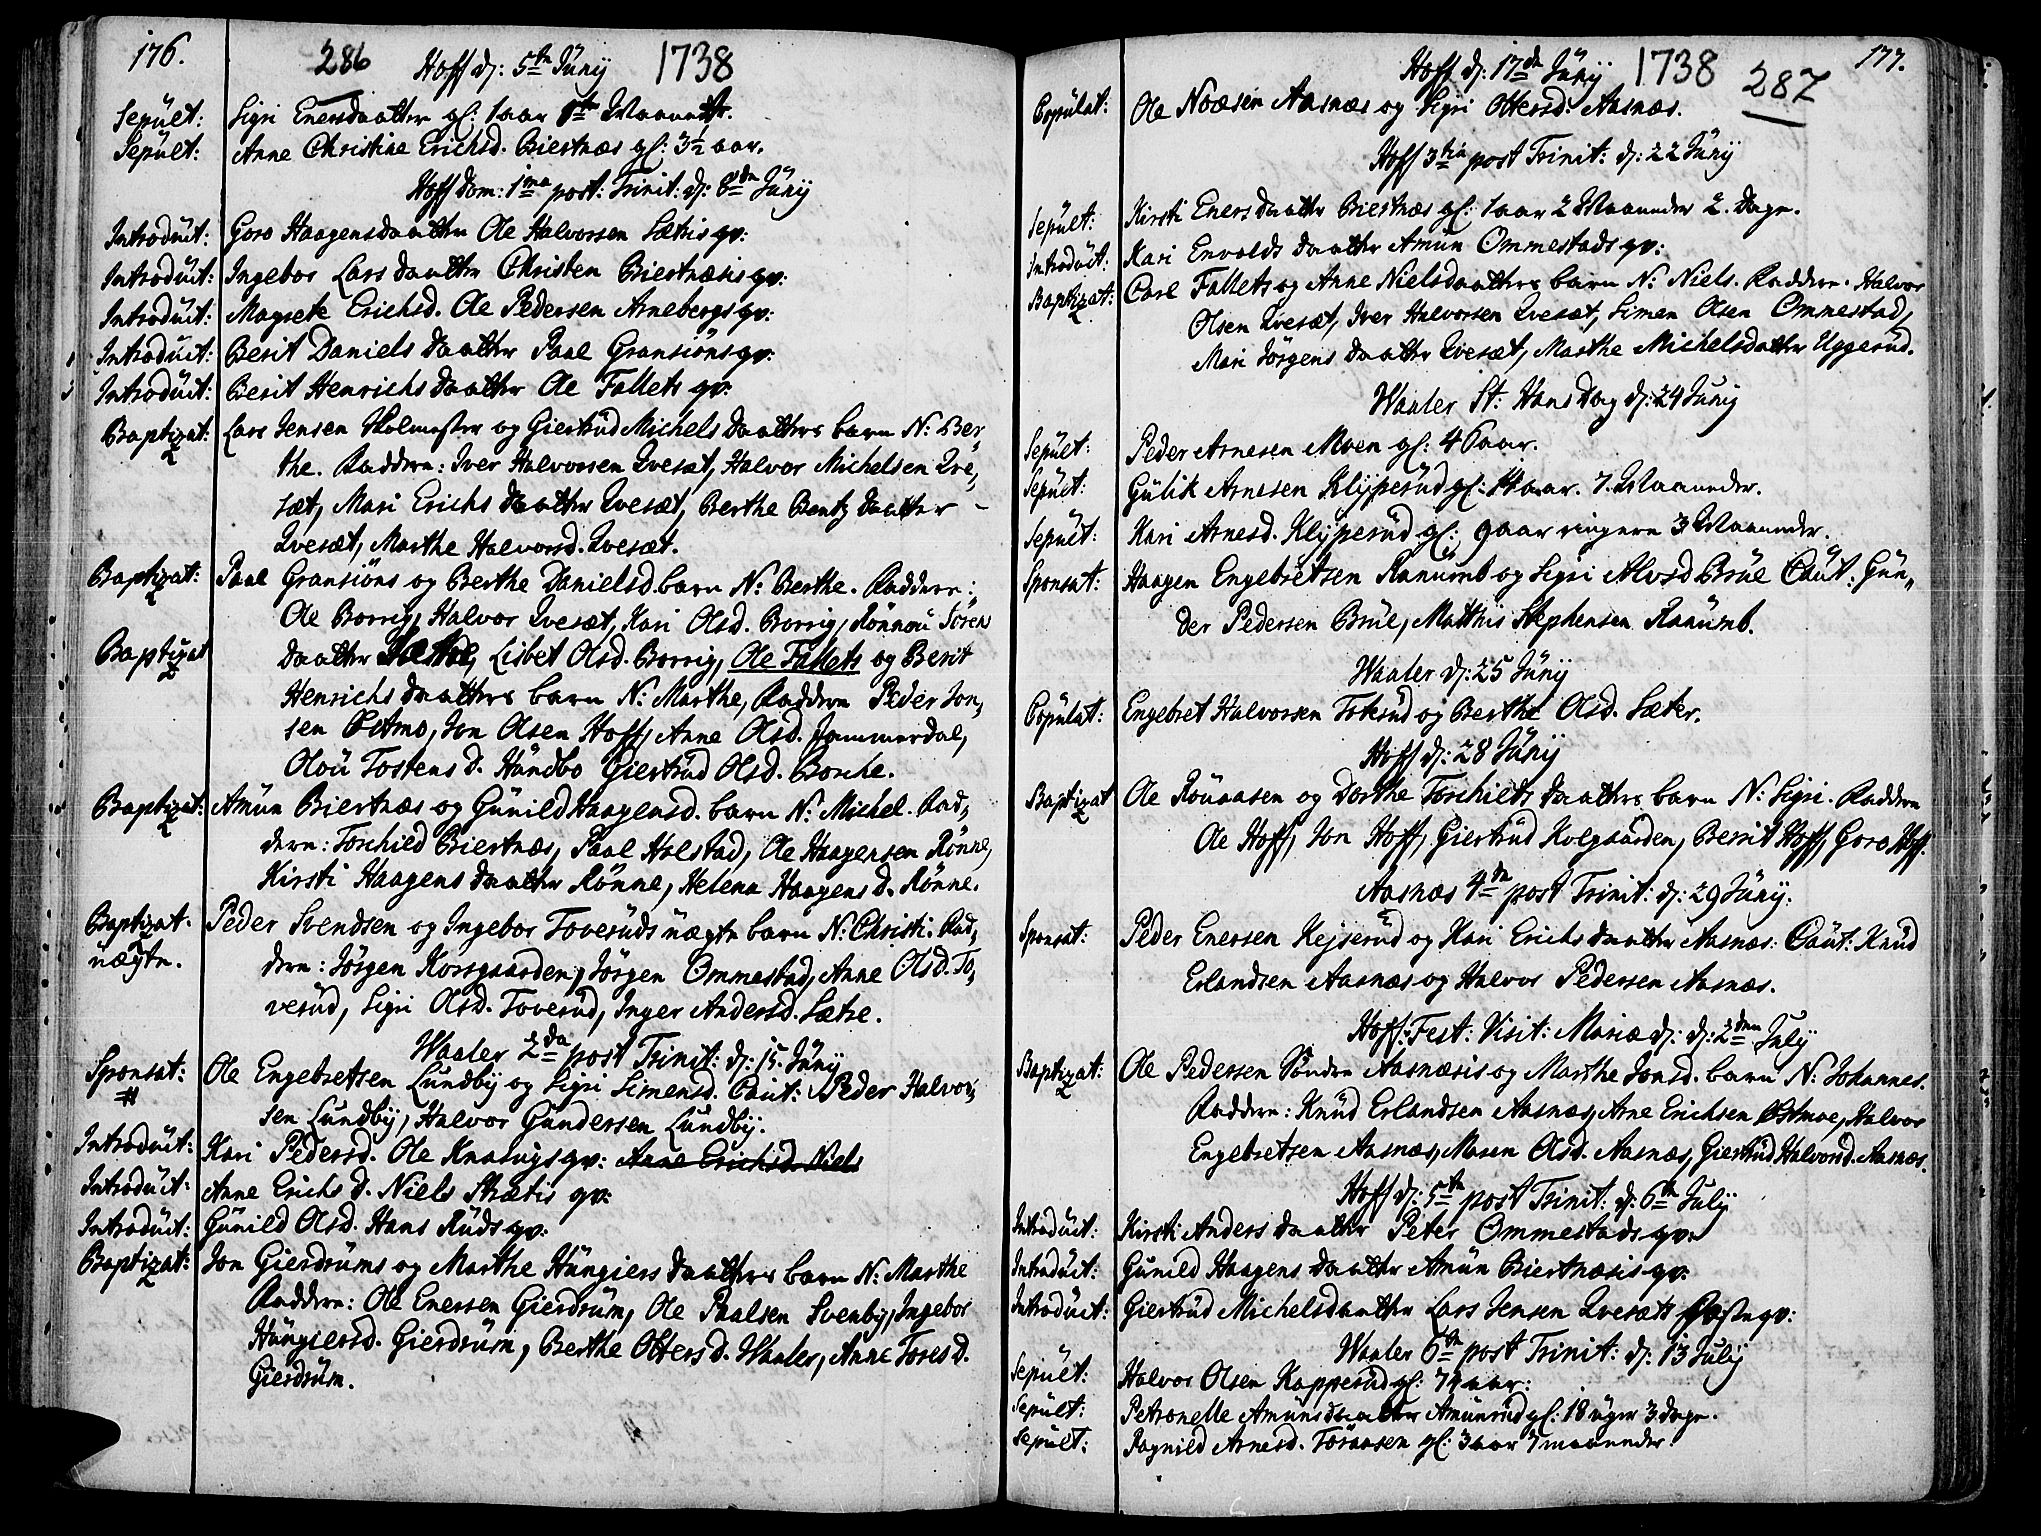 176.
286
Hoff d: 5te Junij 1738
Sepult: Sigri Enersdaatter gl: 1 aar
Sepult: Anne Christine Erichsd. Biertnæs gl: 3½ aar.
Hoff Dom: 1ma post: Trinit: d: 8de Junij
Introduit: Goro Haagensdaatter Ole Halvorsen Sætris qv:
Introduit: Ingebor Larsdaatter Christen Biertnæsis qv:
Introduit: Magrete Erichsd. Ole Pedersen Arnebergs qv:
Introduit: Berit Danielsdaatter Paal Gransiöns qv:
Introduit: Berit Henrichsdaatter Ole Fallets qv:
Baptizat: Lars Jensen Skolmester og Giertrud Michelsdaatters barn N: Ber,
the. Faddere: Iver Halvorsen Qvesæt, Halvor Michelsen Qve,
sæt, Mari Erichsdaatter Qvesæt, Berthe Bentzdaatter
Qvesæt, Marthe Halvorsd. Qvesæt.
Baptizat: Paal Gransiöns og Berthe Danielsd. barn N: Berthe. Faddere:
Ole Borrig, Halvor Qvesæt, Kari Olsd. Borrig, Rönnou Sören
Baptizat daatter Lisbet Olsd. Borrig, Ole Fallets og Berit
Henrichsdaatters barn N: Marthe, Faddere Peder Jon,
sen Østmo, Jon Olsen Hoff, Anne Olsd. Jammerdal,
Olou Tostensd. Hundbo Giertrud Olsd. Borche.
Baptizat: Amun Biertnæs og Gunild Haagensd. barn N: Michel. Fad,
dere: Torchild Biertnæs, Paal Halstad, Ole Haagensen Rönne,
Kirsti Haagensdaatter Rönne, Helena Haagensd. Rönne.
Baptizat. Peder Svendsen og Ingebor Toveruds uægte barn N: Christi. Fad,
uægte. dere: Jörgen Korsgaarden, Jörgen Ommestad, Anne Olsd. To,
verud, Sigri Olsd. Toverud, Inger Andersd. Sætre.
Waaler 2da post Trinit: d: 15 Junij
Sponsat: Ole Engebretsen Lundbij og Sigri Simensd. Caut: Peder Halvor,
sen Lundbij, Halvor Gundersen Lundbij.
Introduit: Kari Pedersd. Ole Knalugs qv: Anne Erichsd. Niels
Introduit: Anne Erichsd. Niels Strætis qv:
Introduit: Gunild Olsd. Hans Ruds qv:
Baptizat: Jon Gierdrums og Marthe Hungiersdaatters barn N: Marthe
Faddere: Ole Enersen Gierdrum, Ole Paalsen Svenby, Ingebor
Hungiersd. Gierdrum, Berthe Ottersd. Waaler, Anne Toresd.
Gierdrum.
177.
287
Hoff d: 17de Junij 1738
Copulat: Ole Noæsen Aasnæs og Sigri Ottersd. Aasnæs.
Hoff 3tia post Trinit: d: 22 Junij
Sepult: Kirsti Enersdaatter Biertnæs gl: 1 aar 2 Maaneder 2. Dage.
Introduit: Kari Envoldsdaatter Amun Ommestads qv:
Baptizat: Carl Fallets og Anne Nielsdaatters barn N: Niels. Faddere. Halvor
Olsen Qvesæt, Iver Halvorsen Qvesæt, Simen Olsen Ommestad,
Mari Jörgensdaatter Qvesæt, Marthe Michelsdatter Uggerud.
Waaler St: Hans Dag d: 24 Junij
Sepult: Peder Arnesen Moen gl: 46 aar.
Sepult: Gulik Arnesen Klijperud gl: aar. 7. Maaneder.
Sepult: Kari Arnesd. Klijperud gl: 9 aar ringere 3 Maaneder.
Sponsat: Haagen Engebretsen Raaumb og Sigri Alvsd Brue Caut: Gun,
der Pedersen Brue, Matthis Stephensen Raaumb.
Waaler d: 25 Junij
Copulat: Engebret Halvorsen Toksud og Berthe Olsd. Sæter.
Hoff d: 28 Junij
Baptizat Ole Rouaasen og Dorthe Torchildsdaatters barn N: Sigri. Faddere
Ole Hoff, Jon Hoff, Giertrud Kolgaarden, Berit Hoff, Goro Hoff.
Aasnæs 4de post Trinit: d: 29 Junij.
Sponsat: Peder Enersen Kejserud og Kari Erichsdaatter Aasnæs: Caut: Knud
Erlandsen Aasnæs og Halvor Pedersen Aasnæs.
Hoff: Fest: Visit: Mariæ d: d: 2den Julij
Baptizat: Ole Pedersen Söndre Aasnæsis og Marthe Jonsd. barn N: Johannes.
Faddere: Knud Erlandsen Aasnæs, Arne Erichsen Østmoe, Halvor
Engebretsen Aasnæs, Maren Olsd. Aasnæs, Giertrud Halvorsd. Aasnæs.
Hoff d: 5te post Trinit: d: 6te Julij
Introduit: Kirsti Andersdaatter Peter Ommestads qv:
Introduit: Gunild Haagensdaatter Amun Biertnæsis qv:
Introduit: Giertrud Michelsdaatter Lars Jensen Qvesæts qv:
Waaler 6te post Trinit: d: 13 Julij
Sepult: Halvor Olsen Kapperud gl: 74 aar:
Sepult: Petronelle Amunsdaatter Amunrud gl: 18 uger 3 dage.
Sepult: Ragnild Arnesd. Toraasen gl: 3 aar 7 maaneder.